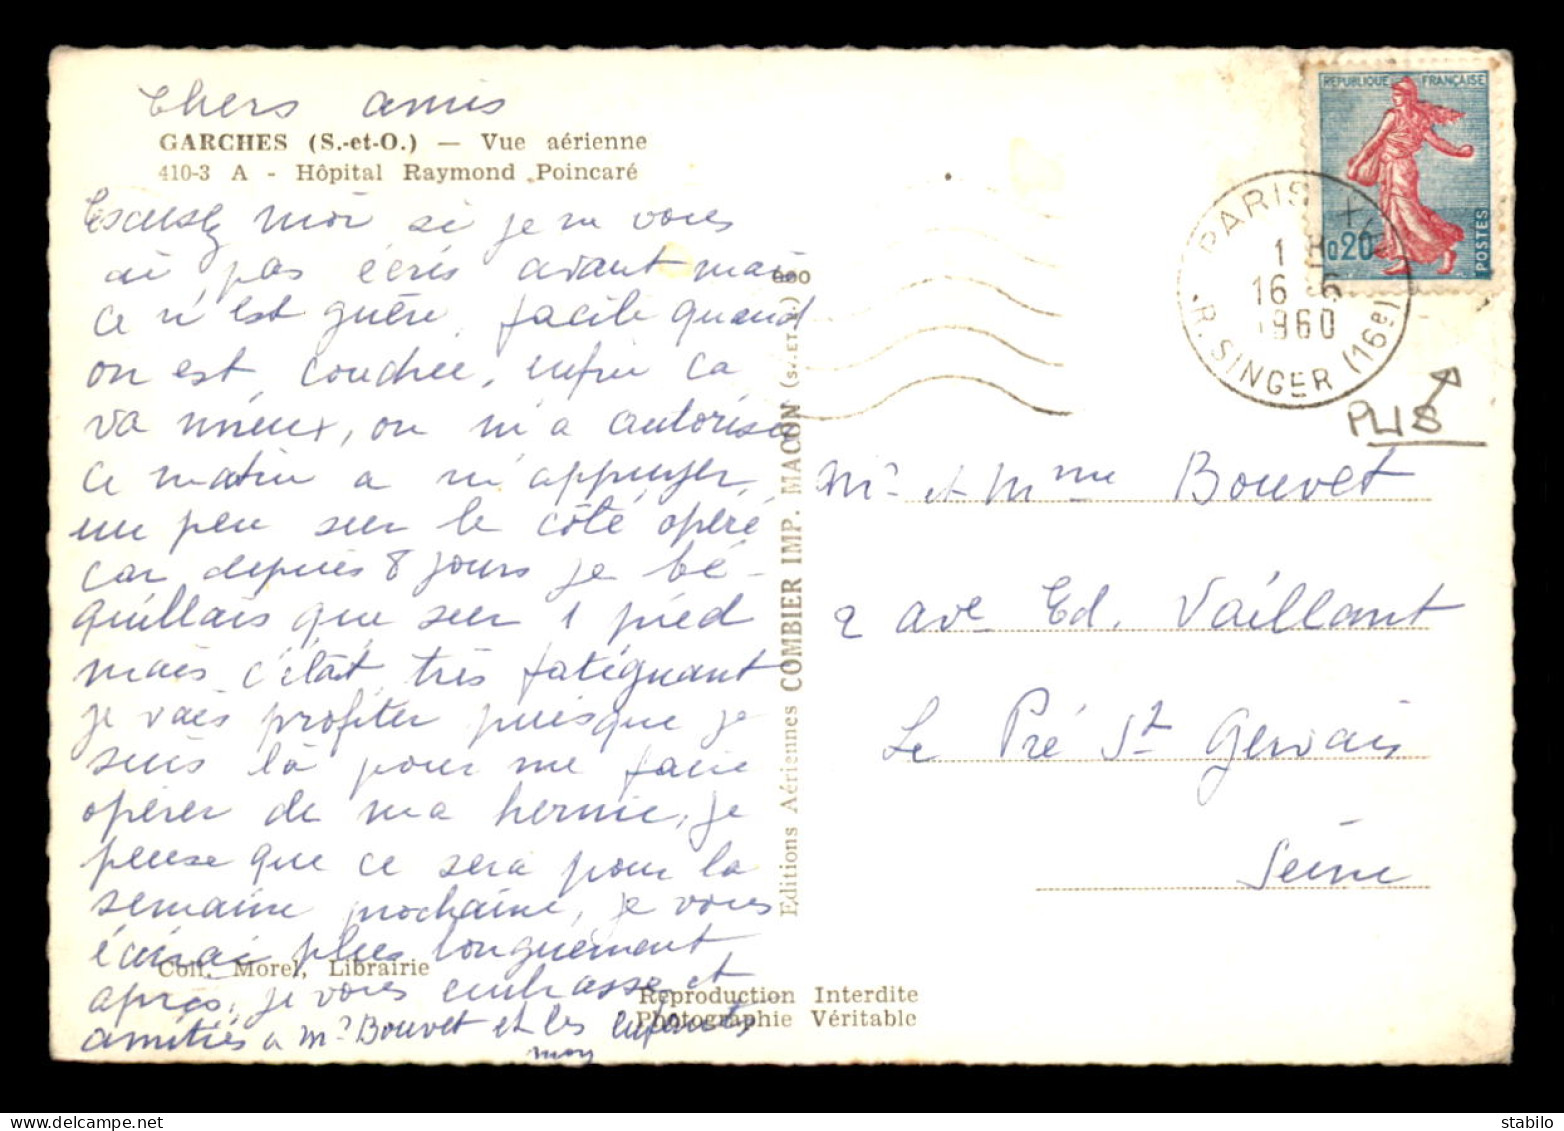 Chers amis
GARCHES (S.-et-O.) — Vue aérienne
410-3 A - Hôpital Raymond Poincaré
Excusez moi si je ne vous
ai pas écris avant mais
ce n'est guère facile quand
on est couchée, enfin ca
va mieux, on m'a autorisé
ce matin a m'appuyer
un peu sur le côté opéré
car depuis 8 jours je bé-
quillais que sur 1 pied
mais c'était très fatiguant
je vais profiter puisque je
suis là pour me faire
opérer de ma hernie, je
pense que ce sera pour la
semaine prochaine, je vous
écrirai plus longuement
Coll. Morel, Librairie
après, je vous embrasse et
amitiés a Mr Bouvet et les enfants
Reproduction Interdite
Photographie Véritable
Editions Aériennes COMBIER IMP. MACON (S.-ET-L.)
REPUBLIQUE FRANÇAISE
0,20
POSTES
PARIS X
R. SINGER (16e)
16 -6
1960
PLIS
Mr et Mme Bouvet
2 ave Ed. Vaillant
Le Pré St Gervais
Seine
stabilo